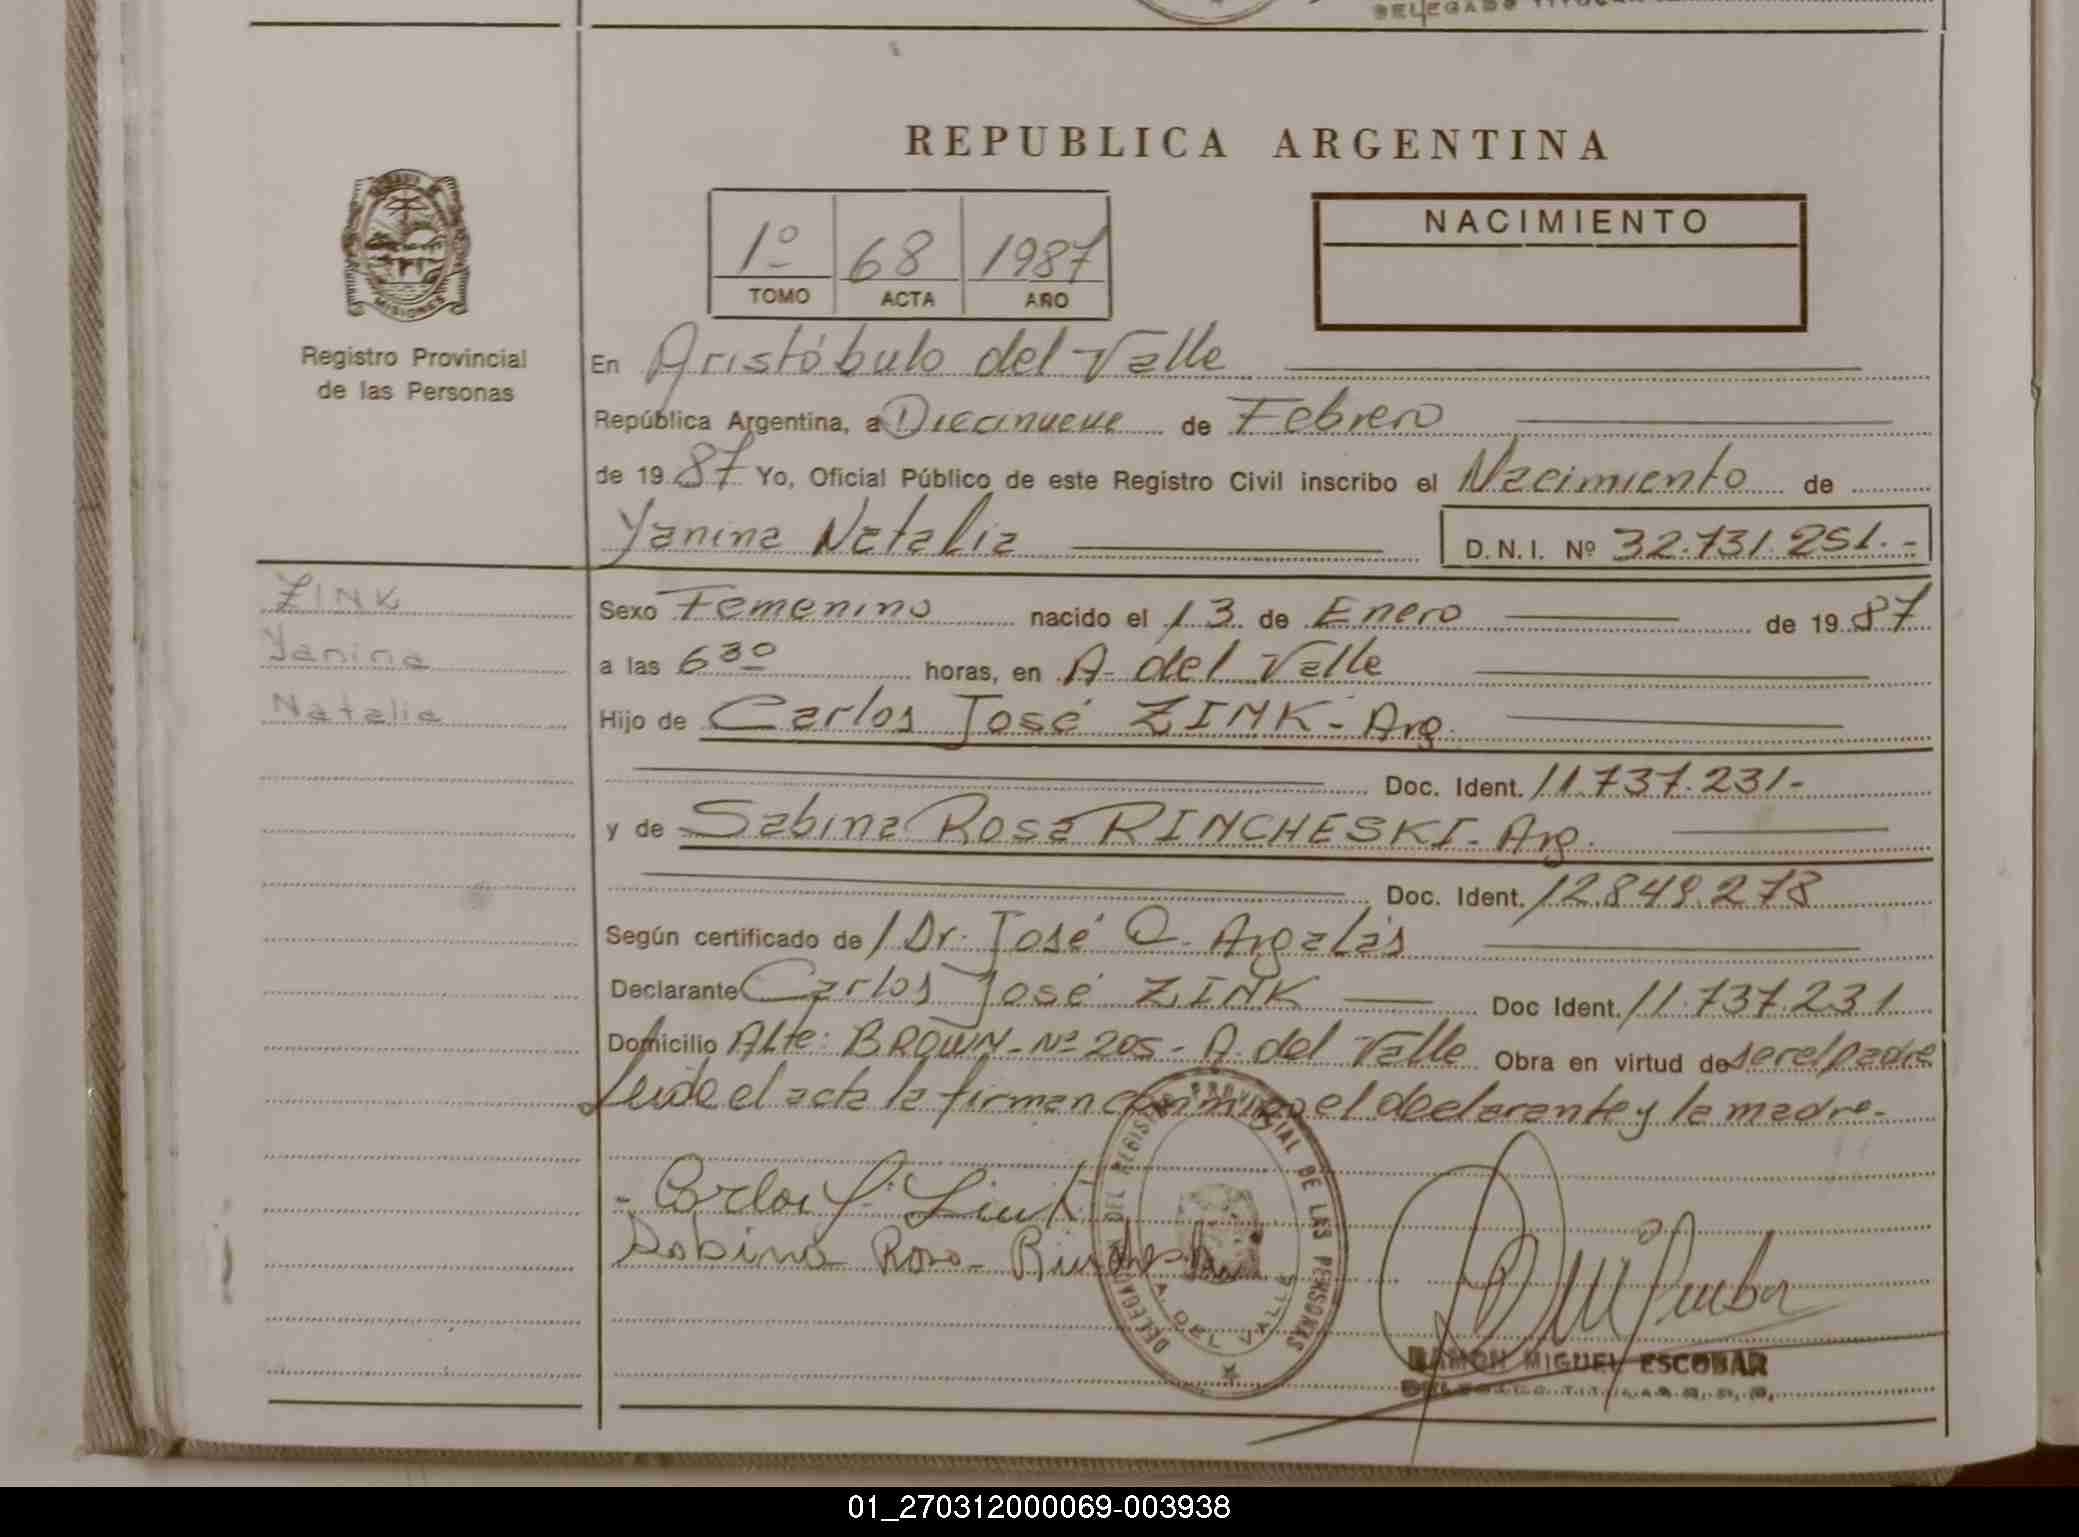 DELEGADO TITULAR
REPUBLICA ARGENTINA
MISIONES
Registro Provincial
de las Personas
1º 68 1987
TOMO ACTA AÑO
NACIMIENTO
En Aristóbulo del Valle
República Argentina, a Diecinueve de Febrero
de 1987 Yo, Oficial Público de este Registro Civil inscribo el Nacimiento de
Yanina Natalia D.N.I. Nº 32.731.251.-
ZINK
Yanina
Natalia
Sexo Femenino nacido el 13 de Enero de 1987
a las 6 30 horas, en A. del Valle
Hijo de Carlos José ZINK - Arg.
Doc. Ident. 11.737.231-
y de Sabina Rosa RINCHESKI - Arg.
Doc. Ident. 12.849.278
Según certificado de / Dr. José O. Argalás
Declarante Carlos José ZINK Doc Ident. 11.737.231
Domicilio Alte: BROWN - Nº 205 - A. del Valle Obra en virtud de ser el padre
Leida el acta la firman conmigo el declarante y la madre.-
- Carlos J. Zink
Sabina Rosa
DELEGACION DEL REGISTRO PROVINCIAL DE LAS PERSONAS
A. DEL VALLE
RAMON MIGUEL ESCOBAR
DELEGADO TITULAR R. P. P.
01_270312000069-003938